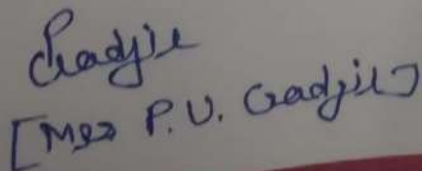 Gadgil
[Mrs P.V. Gadgil]